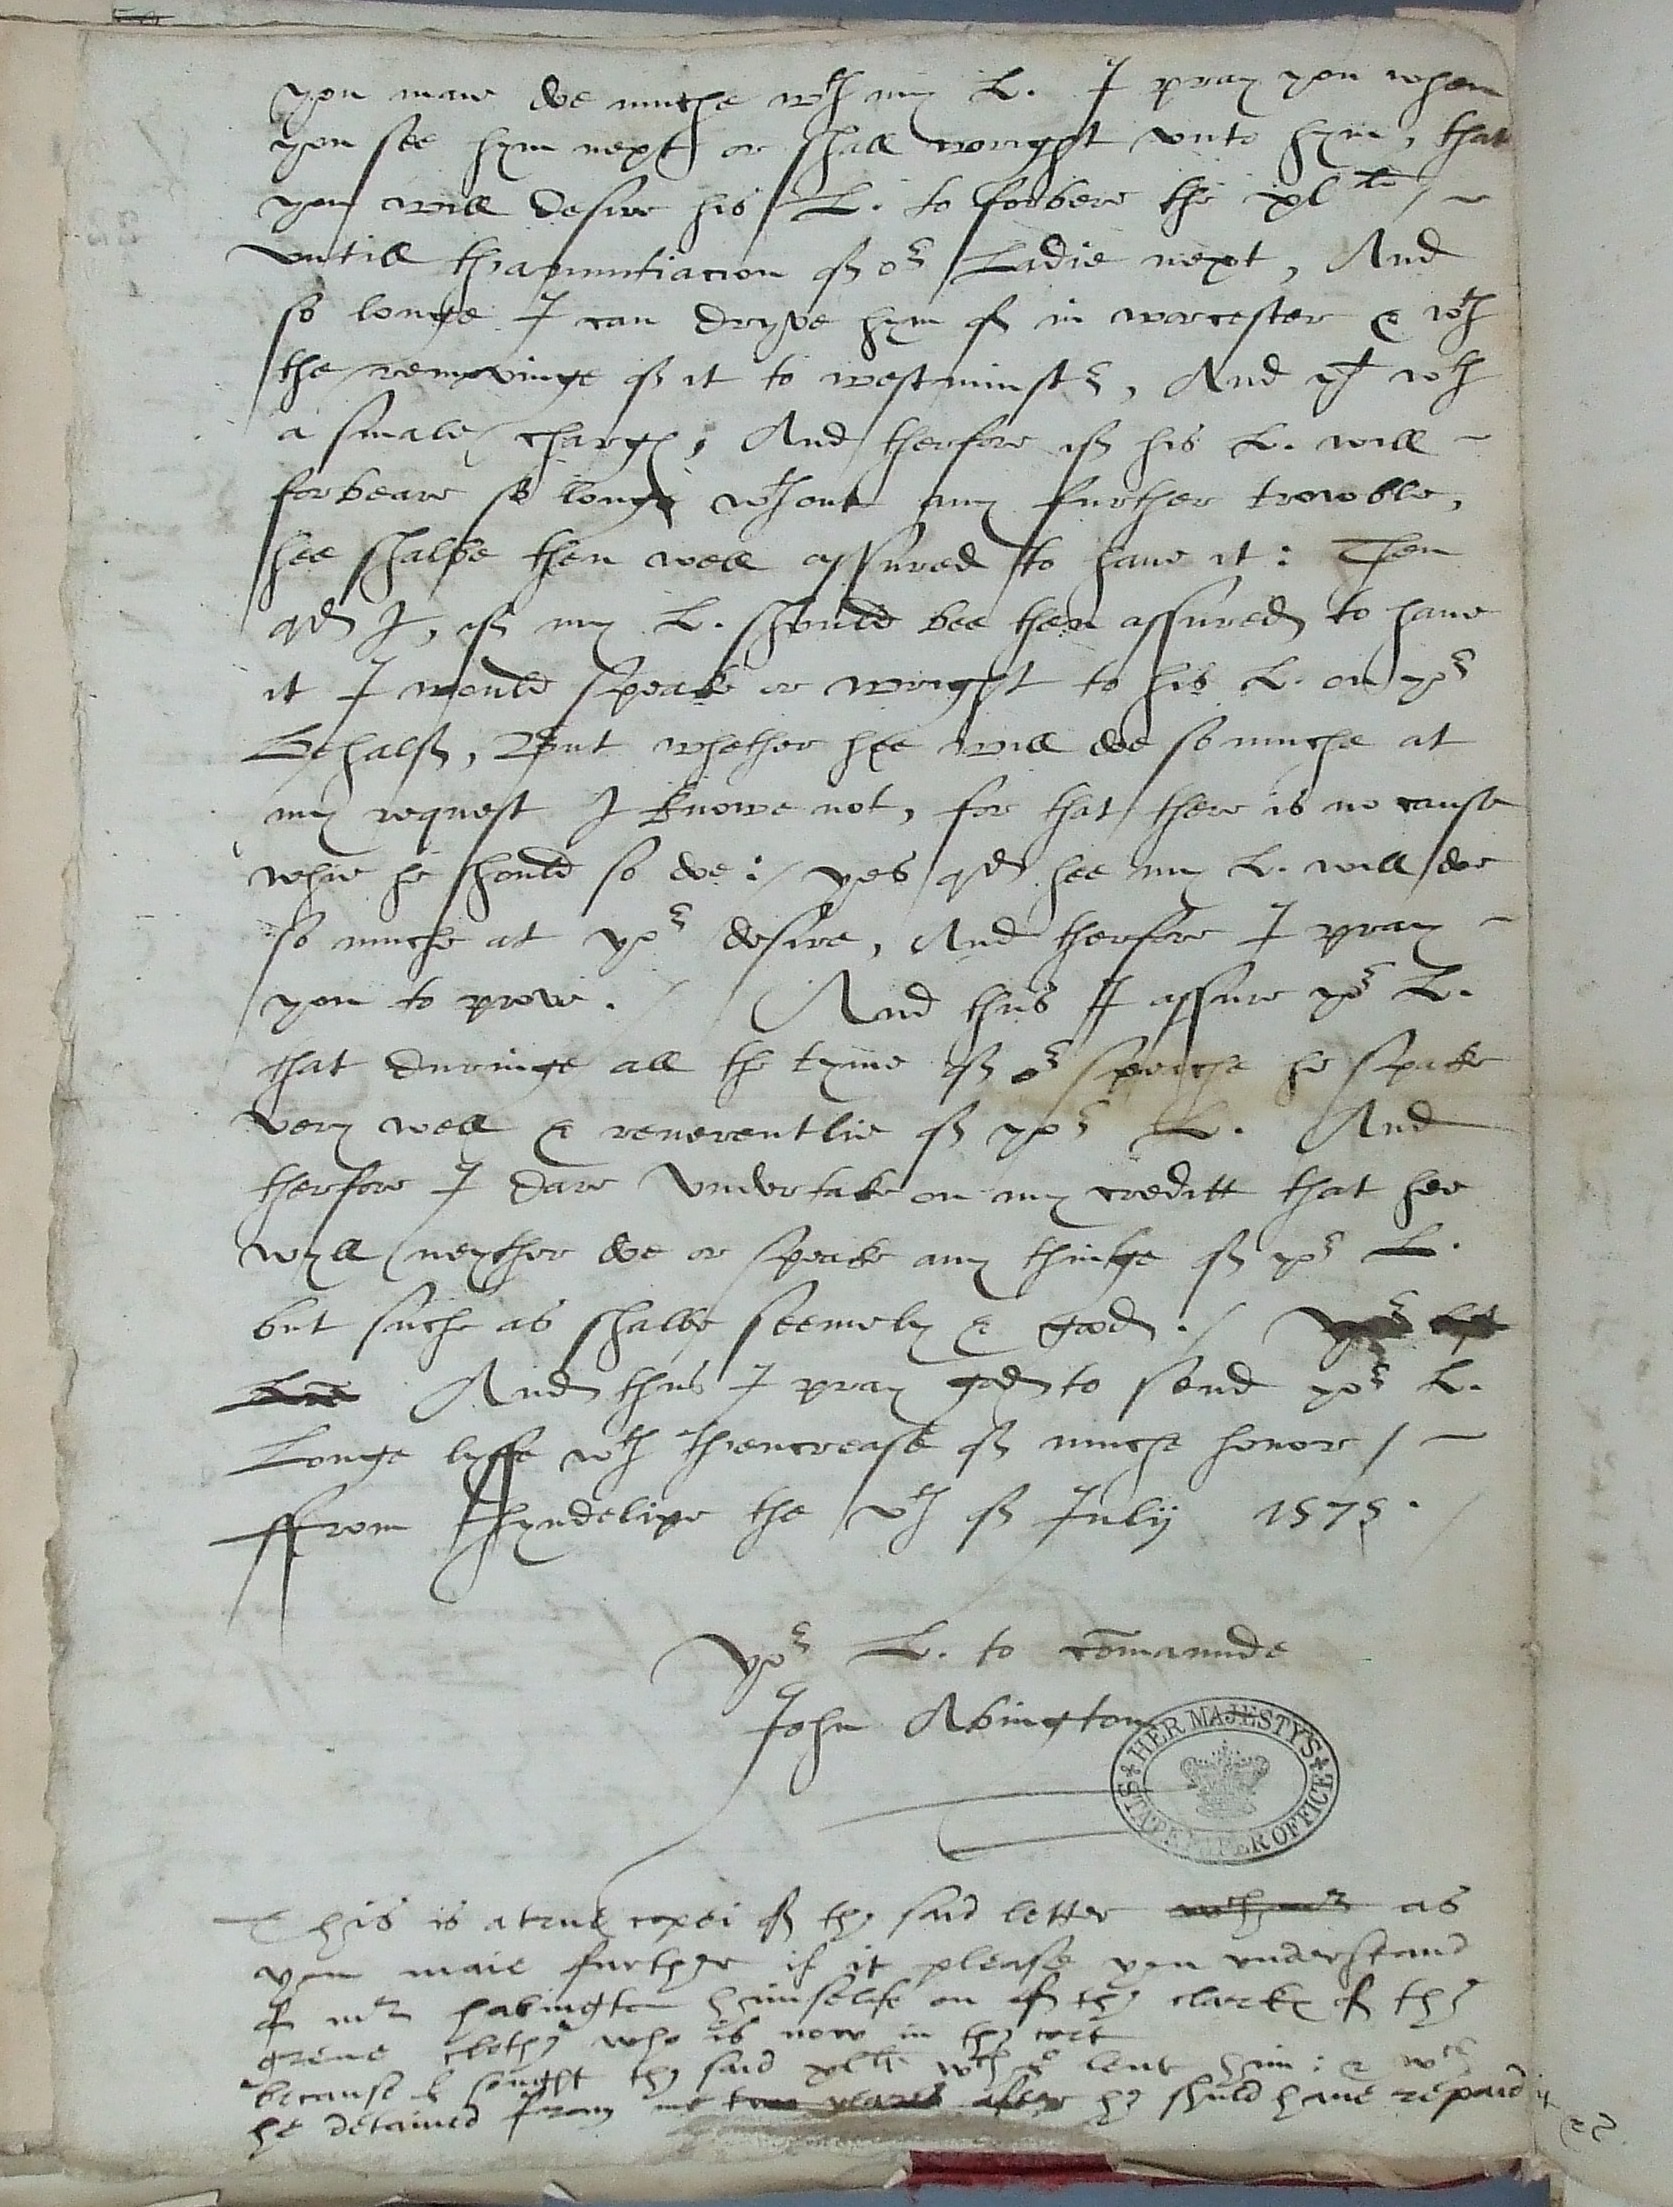 you maie doe muche wth my L. I pray you when
you see hym next or shall wryght vnto hym, that
you will desire his L. to forbere the xl li /
vntill thanuntiacion of or Ladie next, And
so longe I can dryve hym of in worcester & wth
the removinge of it to westminstr, And yt wth
a smale charge, And therfore if his L. will
forbeare so longe wthout any further trowble,
hee shalbe then well assured to haue it: Then
qd I, if my L. should bee then assured to haue
it I would speake or wryght to his L. on yor
Behalf, But whether hee will doe so muche at
my request I knowe not, for that there is no cause
whie he should so doe: / yes qd hee my L. will doe
so muche at yor desire, And therfore I pray
you to prove. / And thus I assure yor L.
that duringe all the tyme of or speeche he spake
very well & reuerentlie of yor L. And
therfore I dare vndertake on my creditt that hee
wyll neyther doe or speake any thinge of yor L.
but suche as shalbe seemely & good. / Yor
And thus I pray god to send yor L.
Longe lyffe wth thencrease of muche honor /
ffrom Hyndelipe the vth of Julij 1575.
Yor L. to comaunde
John Abington
HER MAJESTY'S STATE PAPER OFFICE
This is a true copei of the said letter as
you maie further if it please you vnderstand
of mr habington himselfe on of the clarks of the
grene clothe who is now in the cort
because I sought the said xl li wch I lent him: & wch
he detained from me two yeares after he shuld haue repaid it